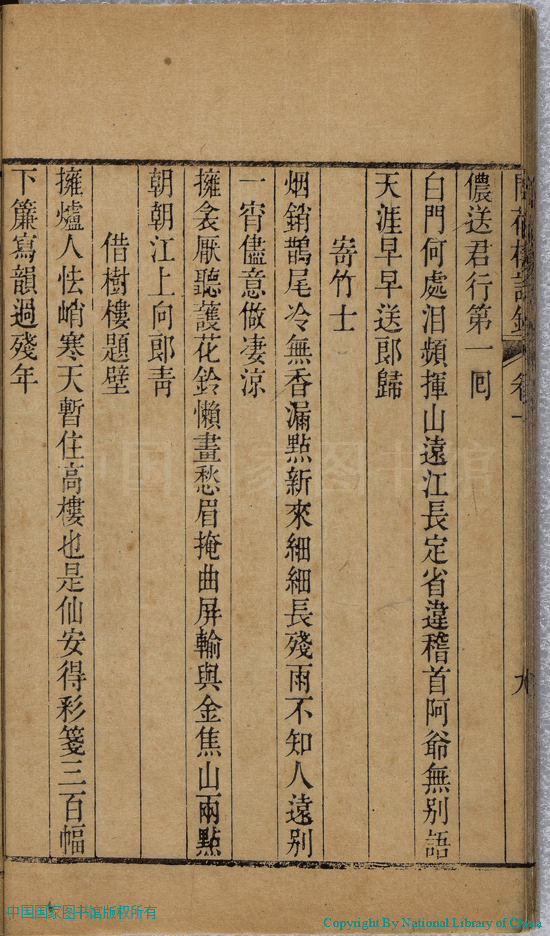 儂送君行第一囘
白門何處淚頻揮山遠江長定省違稽首阿爺無别語
天涯早早送郎歸
寄竹士
烟銷鵲尾冷無香漏點新來細細長殘雨不知人遠别
一宵儘意做凄涼
擁衾厭聽護花鈴懶畫愁眉掩曲屏輸與金焦山兩點
朝朝江上向郎靑
借樹樓題壁
擁爐人怯峭寒天暫住高樓也是仙安得彩箋三百幅
下簾寫韻過殘年
中国国家图书馆
中国国家图书馆版权所有
Copyright By National Library of China